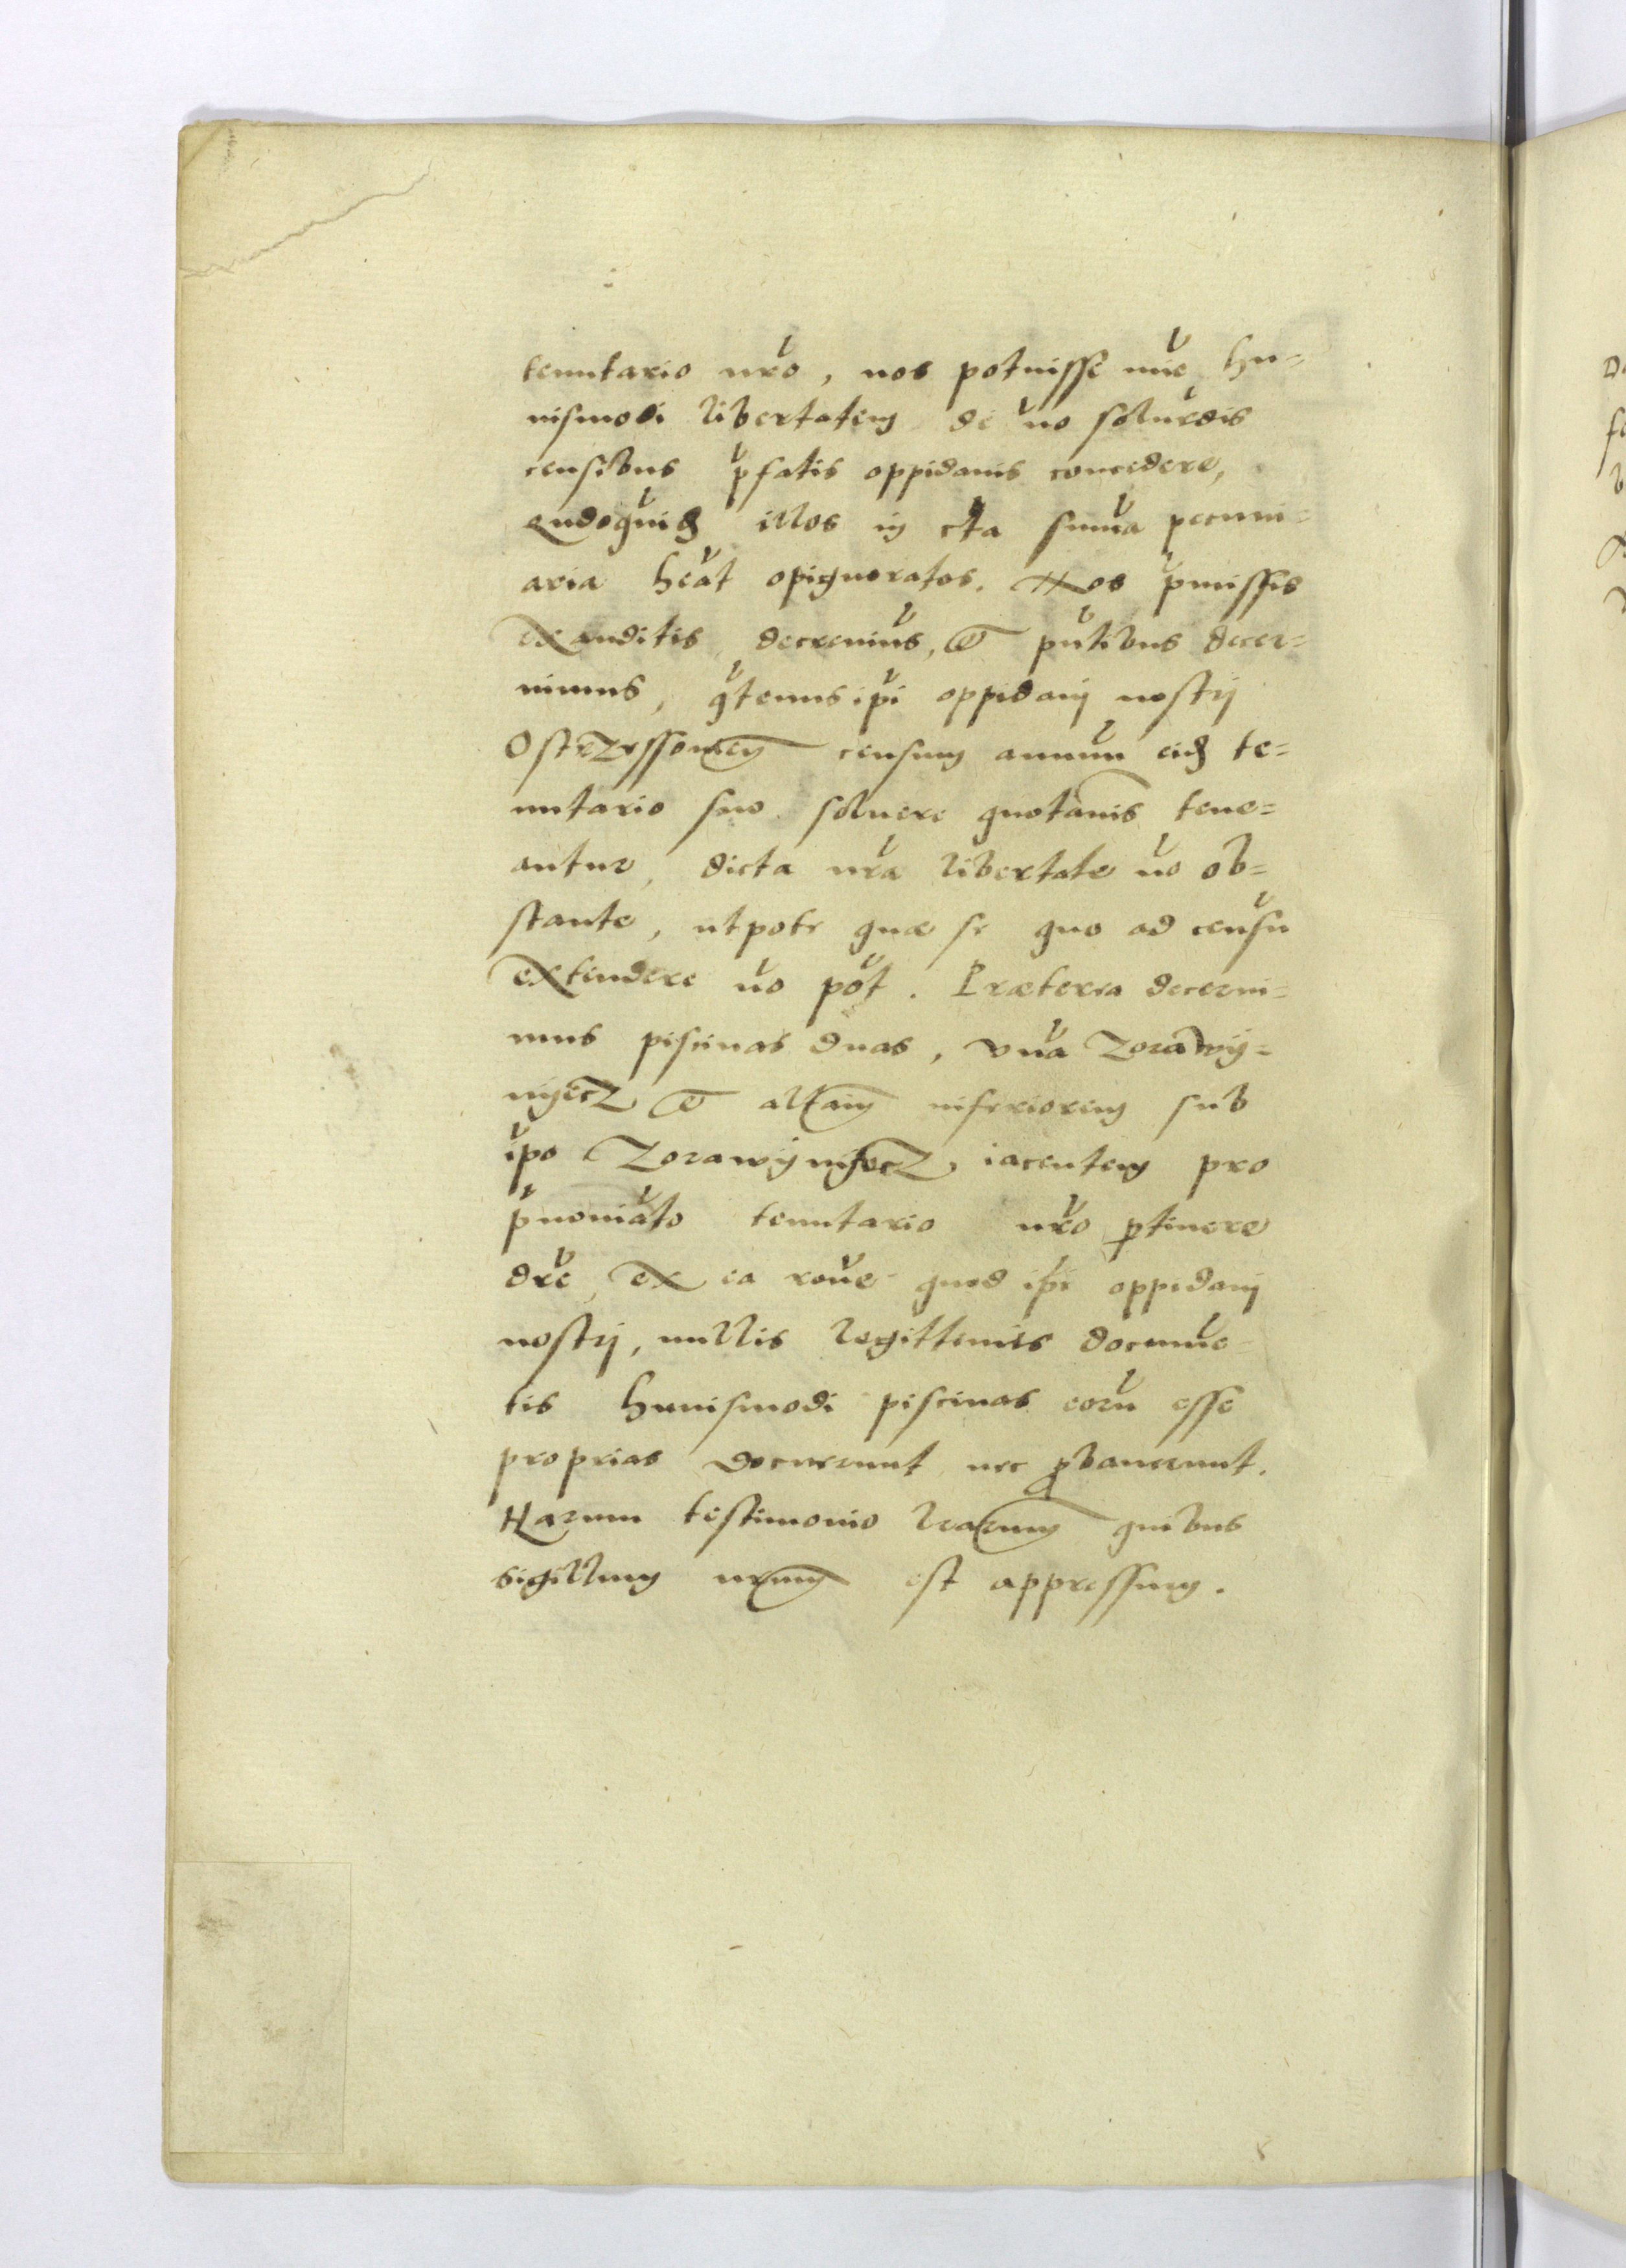 tenutario nr̃o, nos potuisse mĩe hu=
iusmodi libertatem de nõ soluẽdis
censibus p̃fatis oppidanis concedere,
illos in cta sum̃a pecuni=
aria hẽat opignoratos. Nos p̃missis
exauditis decreuim̃s, et pñtibus decer=
nimus, q̃tenus ip̃i oppidanj nostrj
censum annuũ eidẽ te=
nutario suo soluere quotannis tene=
antur, dicta nr̃a libertate nõ ob=
stante, utpote quæ se quo ad censũ
extendere nõ põt. Præterea decerni=
mus piscinas duas, vnã Zorawÿ=
nÿecz et altam inferiorem sub
ip̃o Zorawÿnÿecz iacentem pro
p̃nomiãto tenutario nr̃o ptinere
dr̃e, ex ea rõne quod ip̃i oppidanj
nostrj, nullis legittimis documẽ=
tis huiusmodi piscinas eorũ esse
proprias docuerunt nec pbauerunt.
Harum testimonio lrarum quibus
sigillum nrum est appressum.